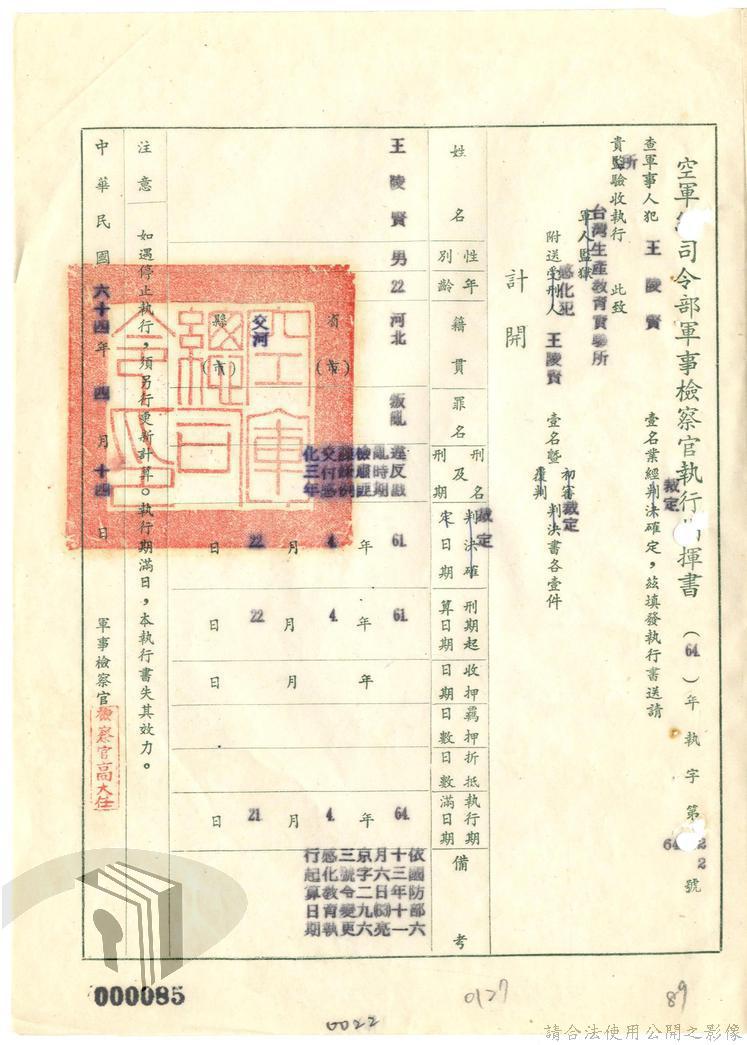 空軍 司令部軍事檢察官執行 揮書(64)年執字第 號
64 2
2
查軍事人犯 王陵賢 壹名業經判決確定,茲填發執行書送請
裁定
貴監驗收執行 此致
所
台灣生產教育實驗所
軍人監獄
附送受刑人 王陵賢 壹名暨 初審 判決書各壹件
感化犯
覆判
裁定
計開
姓名
性別
年齡
籍貫
罪名
刑名及刑期
判決確定日期
裁定
刑期起算日期
收押日期
羈押日數
折抵日數
執行期滿日期
備考
王陵賢
男
22
河北省(市)
交河縣(市)
叛亂
違反戡
亂時期
檢肅匪
諜條例
交付感
化三年
61.年4.月22.日
61.年4.月22.日
年月日
64.年4.月21.日
依國防部六
十三年十一
月六日(63)亮
京字二九六
三號令變更
感化教育執
行起算日期
注意 如遇停止執行,須另行更新計算。執行期滿日,本執行書失其效力。
中華民國六十四年四月十四日
軍事檢察官
檢察官高大任
空軍
總司
令印
000085
0022
0127
89
請合法使用公開之影像